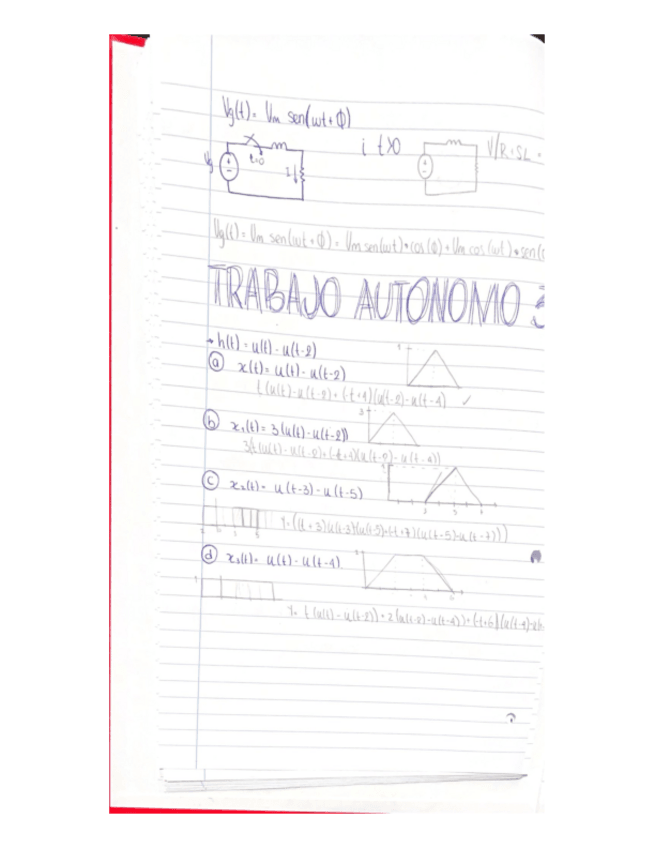 Vg(t) = Vm sen(wt + ϕ)
Vg t=0 I
i t>0
V/R+SL =
Vg(t) = Vm sen(wt + ϕ) = Vm sen(wt) * cos(ϕ) + Vm cos(wt) * sen(
TRABAJO AUTONOMO 3
→ h(t) = u(t) - u(t-2)
ⓐ x(t) = u(t) - u(t-2)
t(u(t) - u(t-2) + (-t+4)(u(t-2) - u(t-4) ✓
ⓑ x₁(t) = 3(u(t) - u(t-2))
3(t(u(t) - u(t-2) + (-t+4)(u(t-2) - u(t-4))
ⓒ x₂(t) = u(t-3) - u(t-5)
3 5
ⓓ x₃(t) = u(t) - u(t-4)
y = t(u(t) - u(t-2)) + 2(u(t-2) - u(t-4)) + (-t+6)(u(t-4)